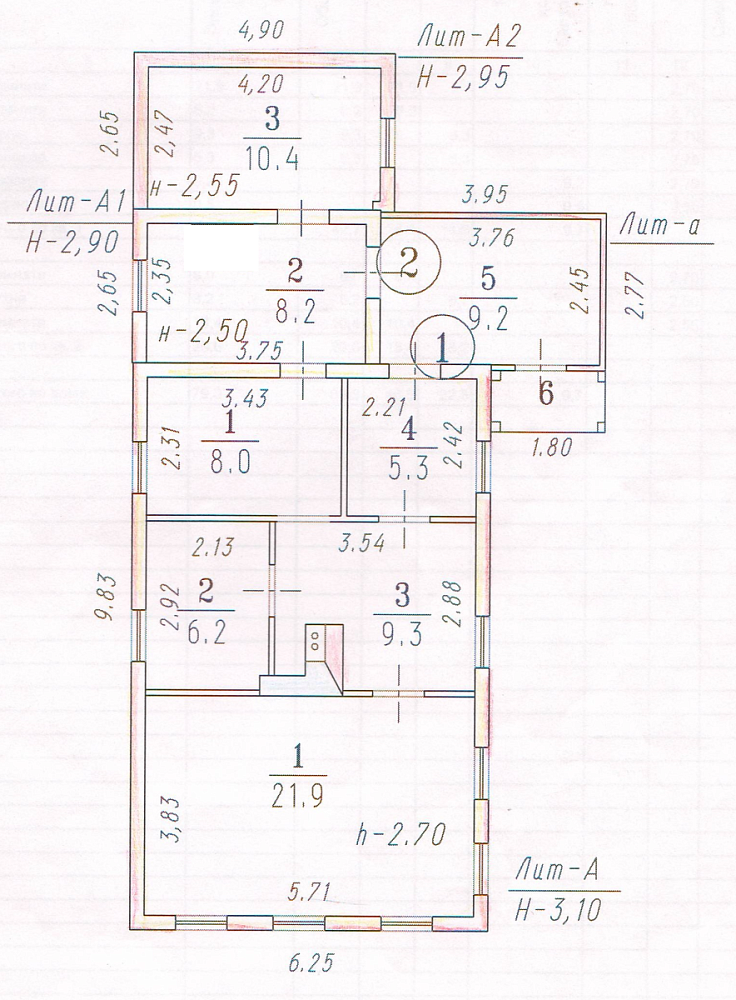 4,90
Лит-А2
Н-2,95
4,20
2.65
2,47
3
10.4
н-2,55
Лит-А1
Н-2,90
3.95
Лит-а
3.76
2,65
2,35
2
8.2
2
5
9.2
2.45
2.77
н-2,50
3.75
1
6
3.43
2.21
1.80
2.31
1
8.0
4
5.3
2.42
2.13
3.54
9.83
2,92
2
6.2
3
9.3
2.88
1
21.9
3,83
h-2.70
5.71
Лит-А
Н-3,10
6.25